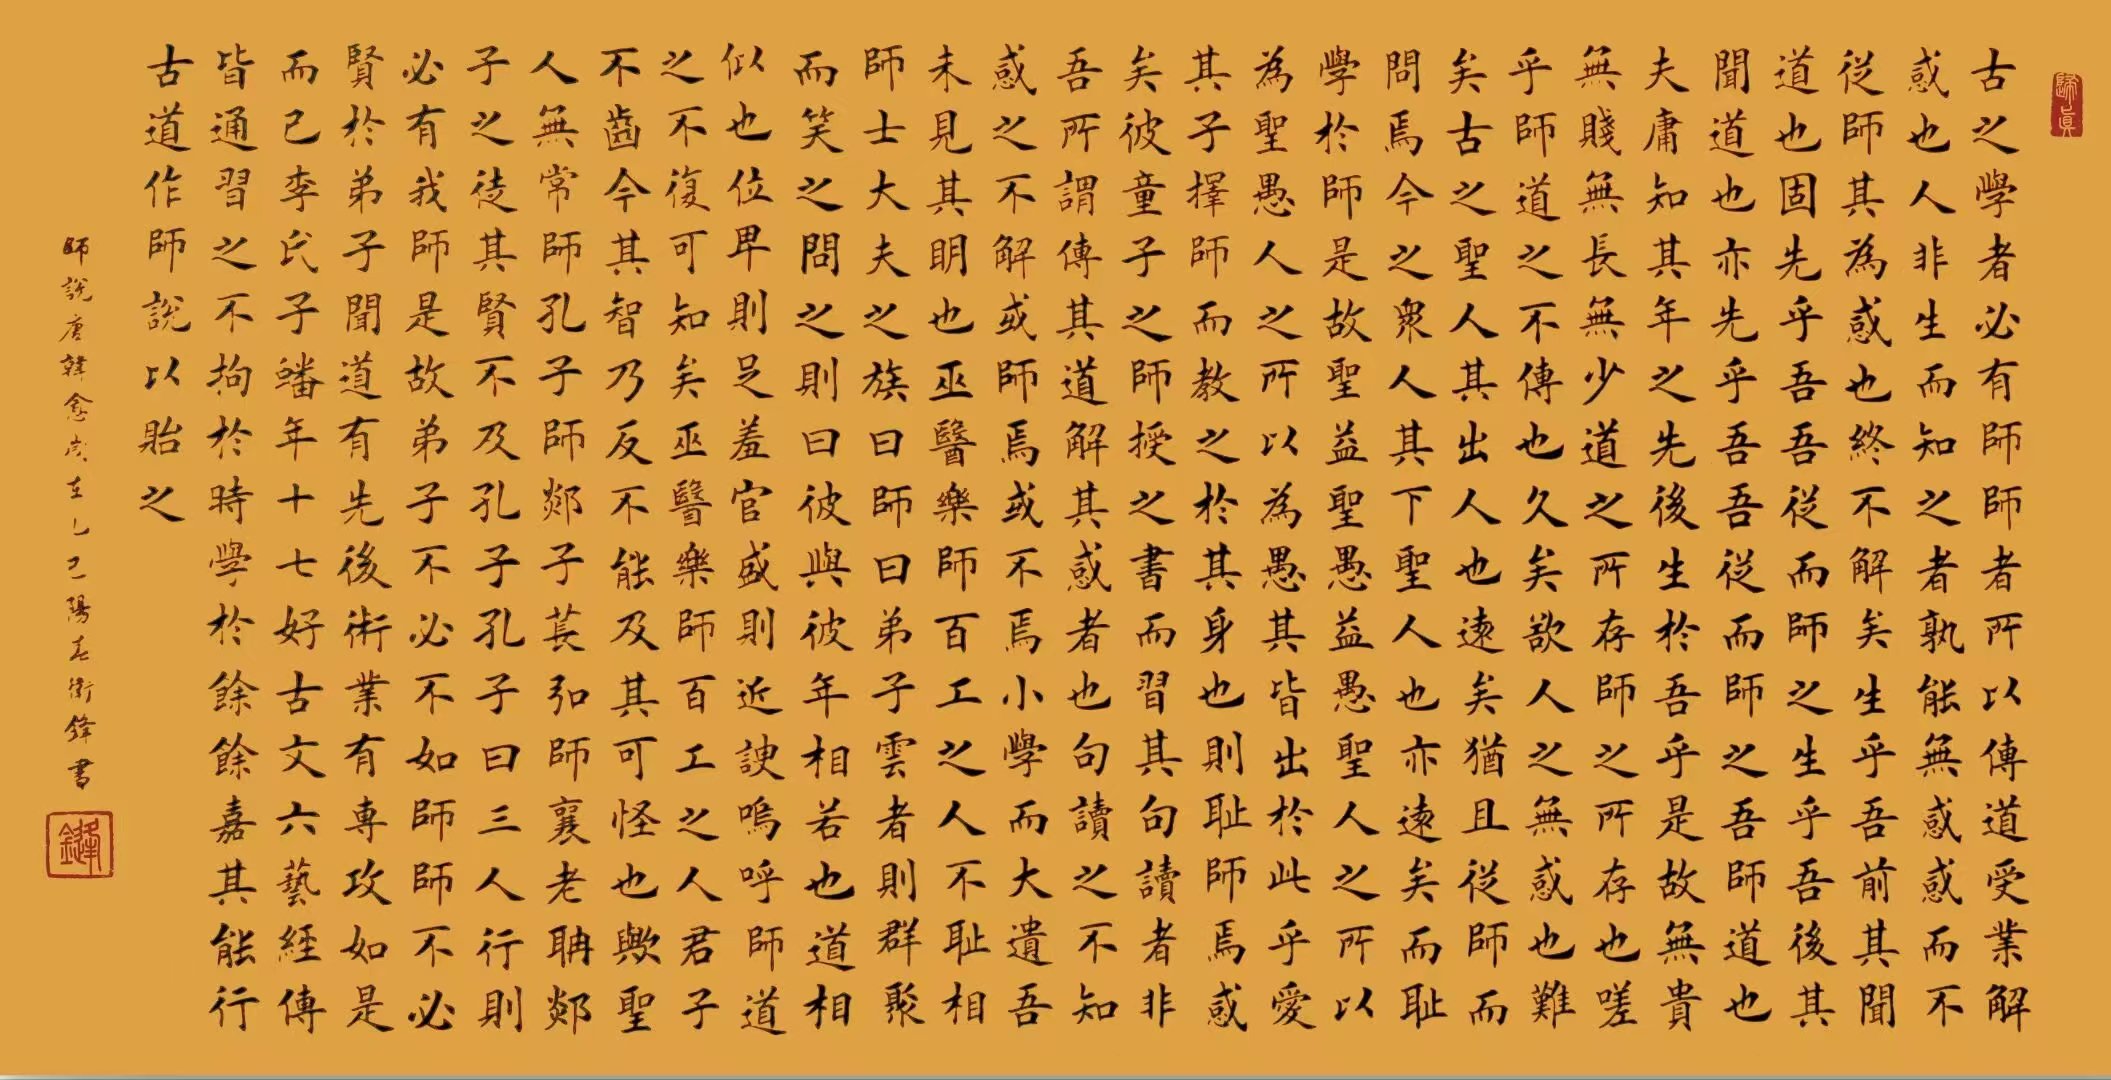 歸真
古之學者必有師師者所以傳道受業解
惑也人非生而知之者孰能無惑惑而不
從師其為惑也終不解矣生乎吾前其聞
道也固先乎吾吾從而師之生乎吾後其
聞道也亦先乎吾吾從而師之吾師道也
夫庸知其年之先後生於吾乎是故無貴
無賤無長無少道之所存師之所存也嗟
乎師道之不傳也久矣欲人之無惑也難
矣古之聖人其出人也遠矣猶且從師而
問焉今之眾人其下聖人也亦遠矣而耻
學於師是故聖益聖愚益愚聖人之所以
為聖愚人之所以為愚其皆出於此乎愛
其子擇師而教之於其身也則耻師焉惑
矣彼童子之師授之書而習其句讀者非
吾所謂傳其道解其惑者也句讀之不知
惑之不解或師焉或不焉小學而大遺吾
未見其明也巫醫樂師百工之人不耻相
師士大夫之族曰師曰弟子雲者則群聚
而笑之問之則曰彼與彼年相若也道相
似也位卑則足羞官盛則近諛嗚呼師道
之不復可知矣巫醫樂師百工之人君子
不齒今其智乃反不能及其可怪也歟聖
人無常師孔子師郯子萇弘師襄老聃郯
子之徒其賢不及孔子孔子曰三人行則
必有我師是故弟子不必不如師師不必
賢於弟子聞道有先後術業有專攻如是
而已李氏子蟠年十七好古文六藝經傳
皆通習之不拘於時學於餘餘嘉其能行
古道作師說以貽之
師說唐韓愈歲在乙巳陽春衛鋒書
鋒